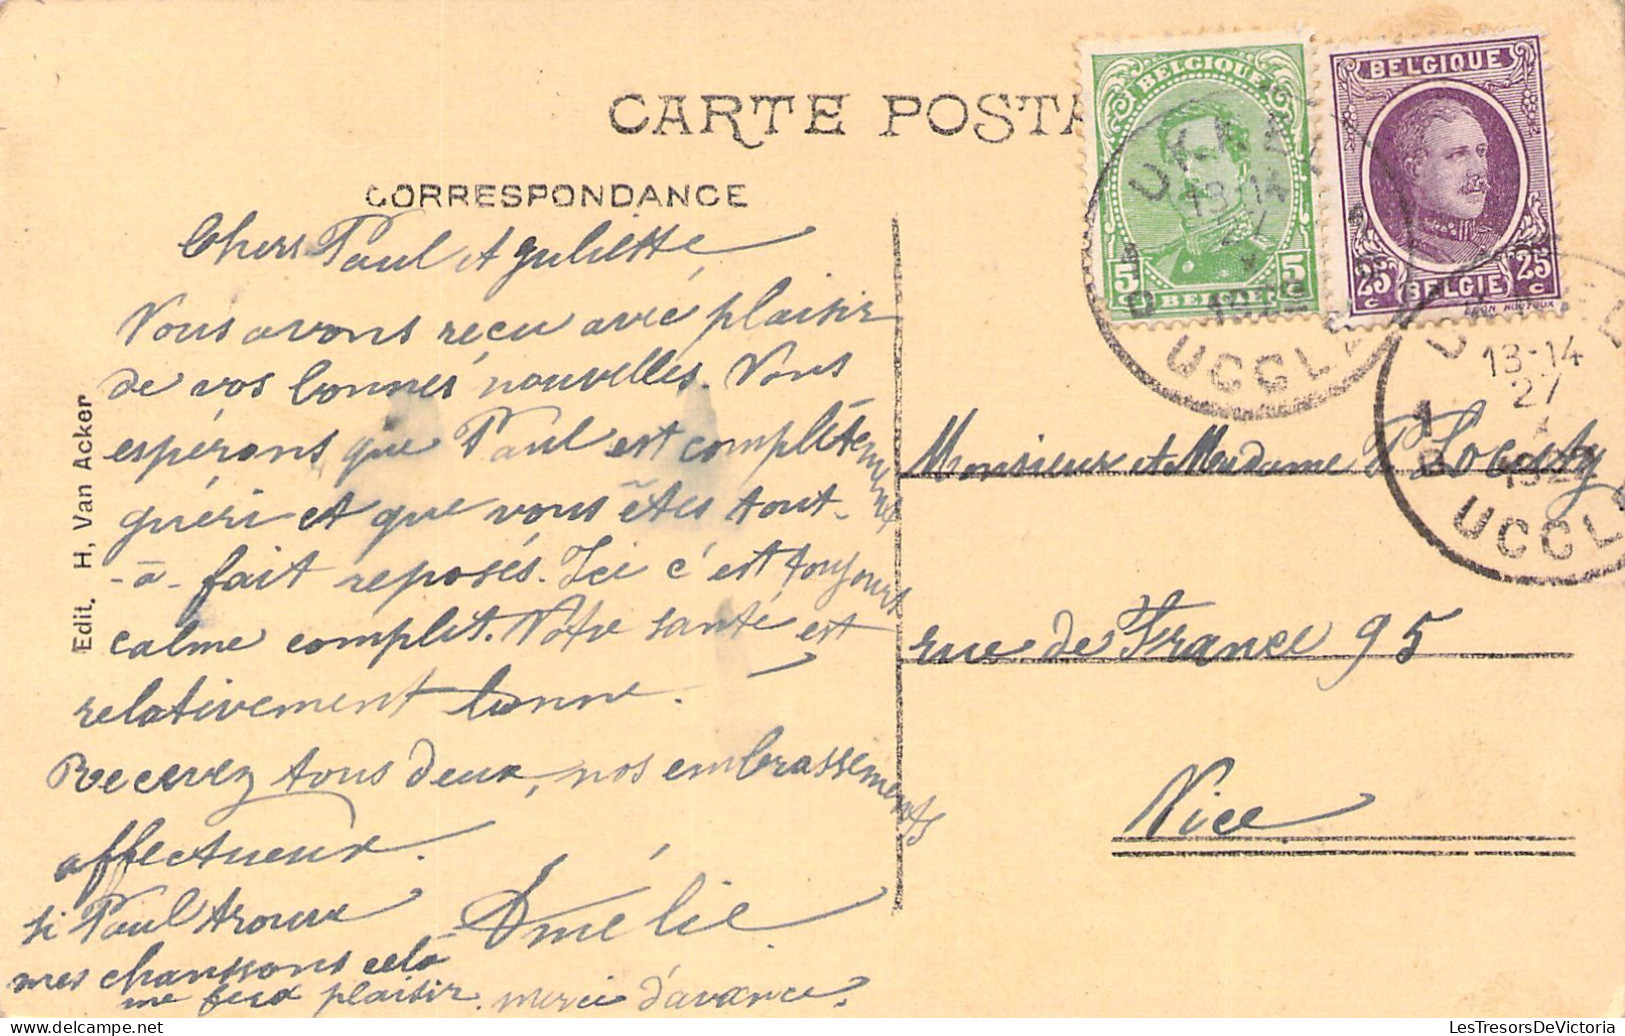 CARTE POSTA
CORRESPONDANCE
Chers Paul et Juliette
Vous avons reçu avec plaisir
de vos bonnes nouvelles. Vous
espérons que Paul est complètement
guéri et que vous êtes tout-
-à- fait reposés. Ici c'est toujours
calme complet. Notre santé est
relativement bonne.
Recevez tous deux, nos embrassements
affectueux.
Amélie
si Paul trouve
mes chanssons cela
me feux plaisir. merci d'avance.
Edit. H. Van Acker
BELGIQUE
5 5
BELGIË
BELGIQUE
25 25
C C
BELGIE
UKKEL
13-14
27
1
B
UCCLE
13-14
27
1
B
UCCLE
Monsieur et Madame P.
rue de France 95
Nice
LesTresorsDeVictoria